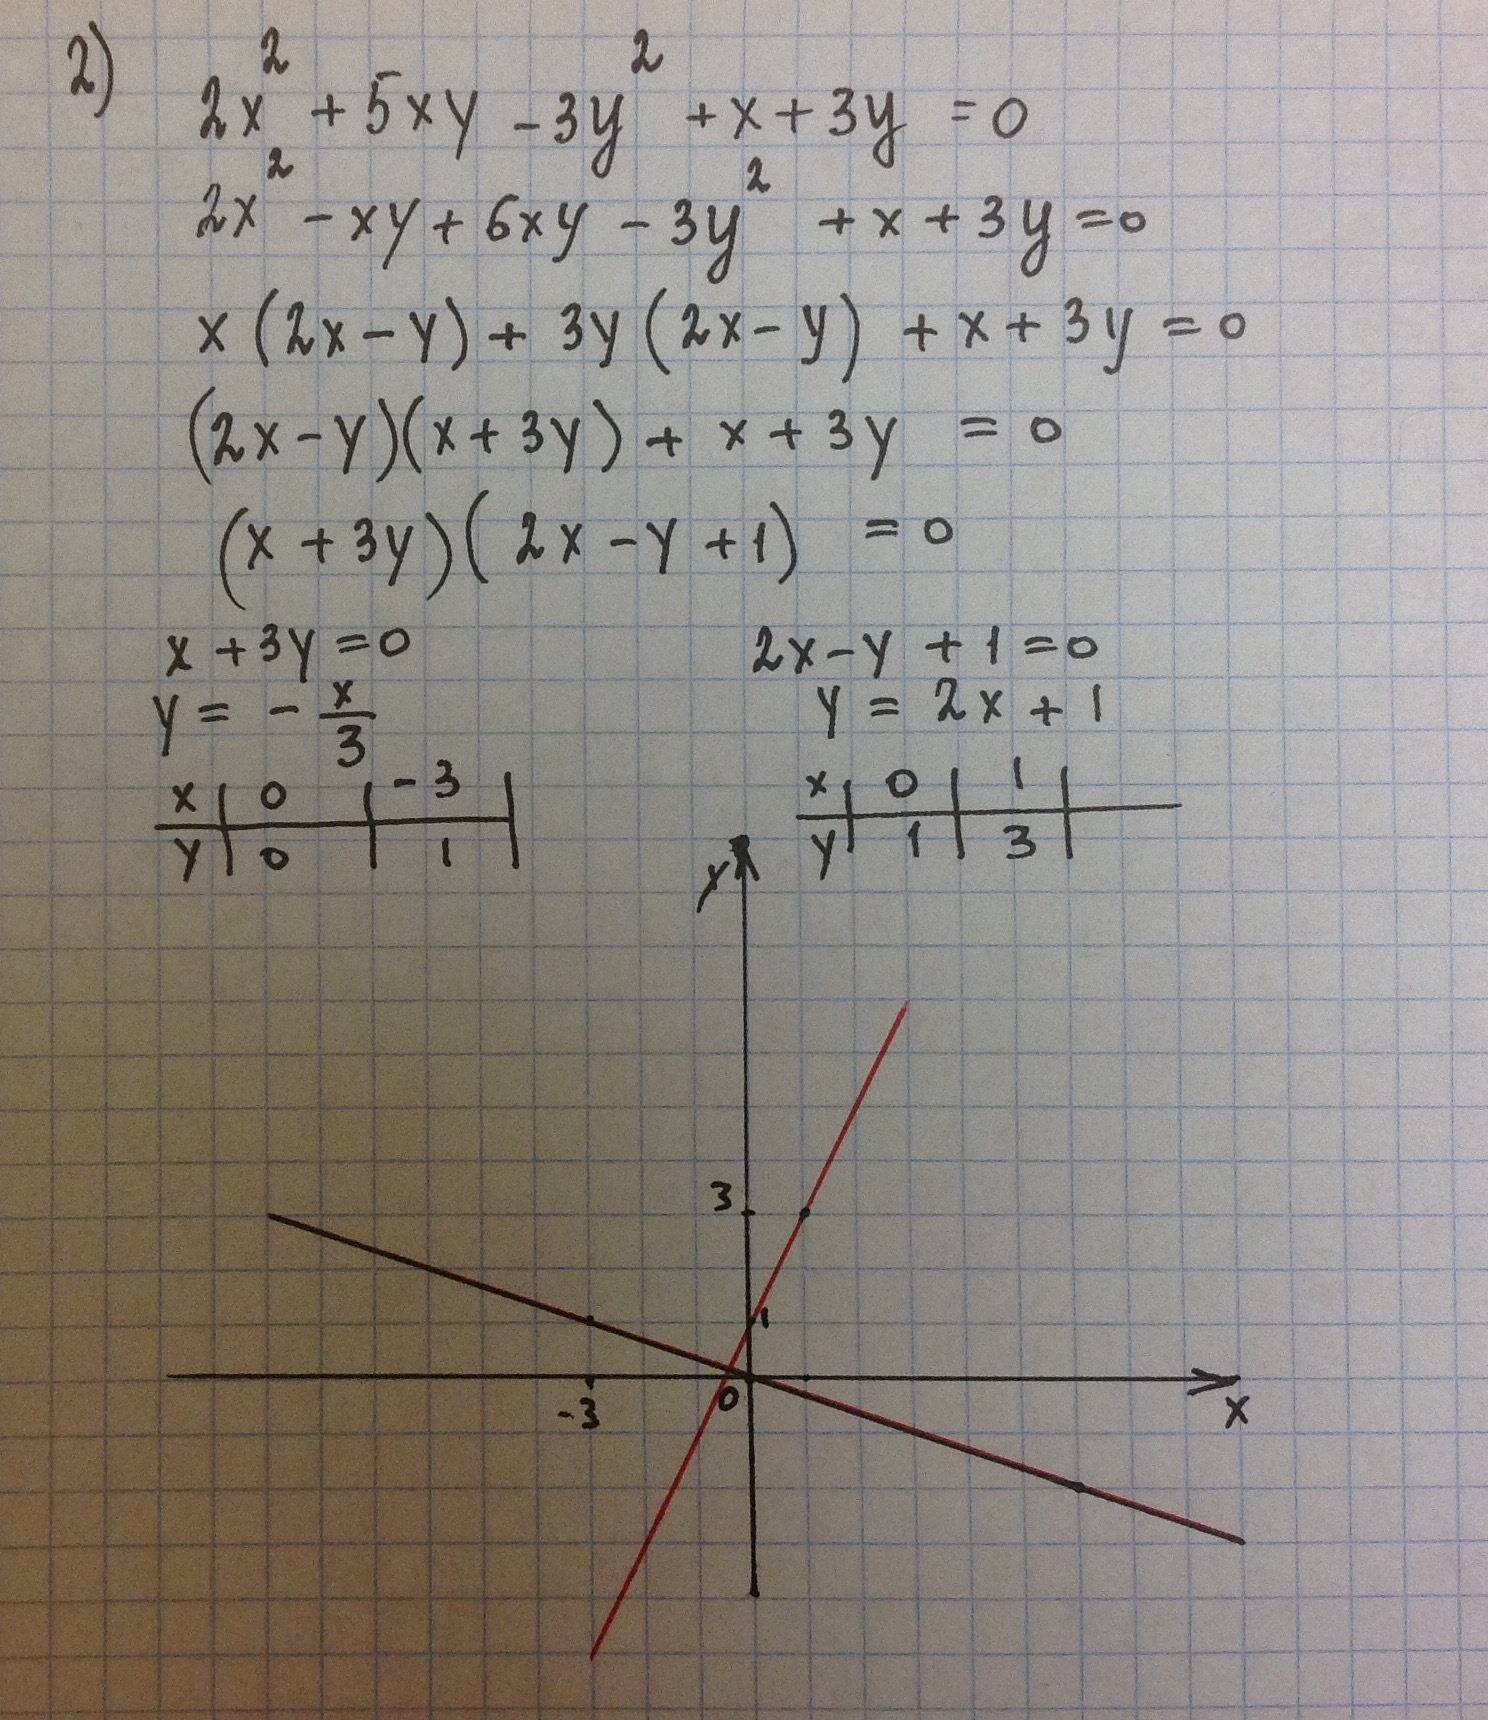 2) 2x² + 5xy - 3y² + x + 3y = 0
2x² - xy + 6xy - 3y² + x + 3y = 0
x (2x - y) + 3y (2x - y) + x + 3y = 0
(2x - y)(x + 3y) + x + 3y = 0
(x + 3y)(2x - y + 1) = 0
x + 3y = 0
y = - x/3
x | 0 | -3 |
y | 0 | 1 |
2x - y + 1 = 0
y = 2x + 1
x | 0 | 1 |
y | 1 | 3 |
y
3
1
-3
0
x